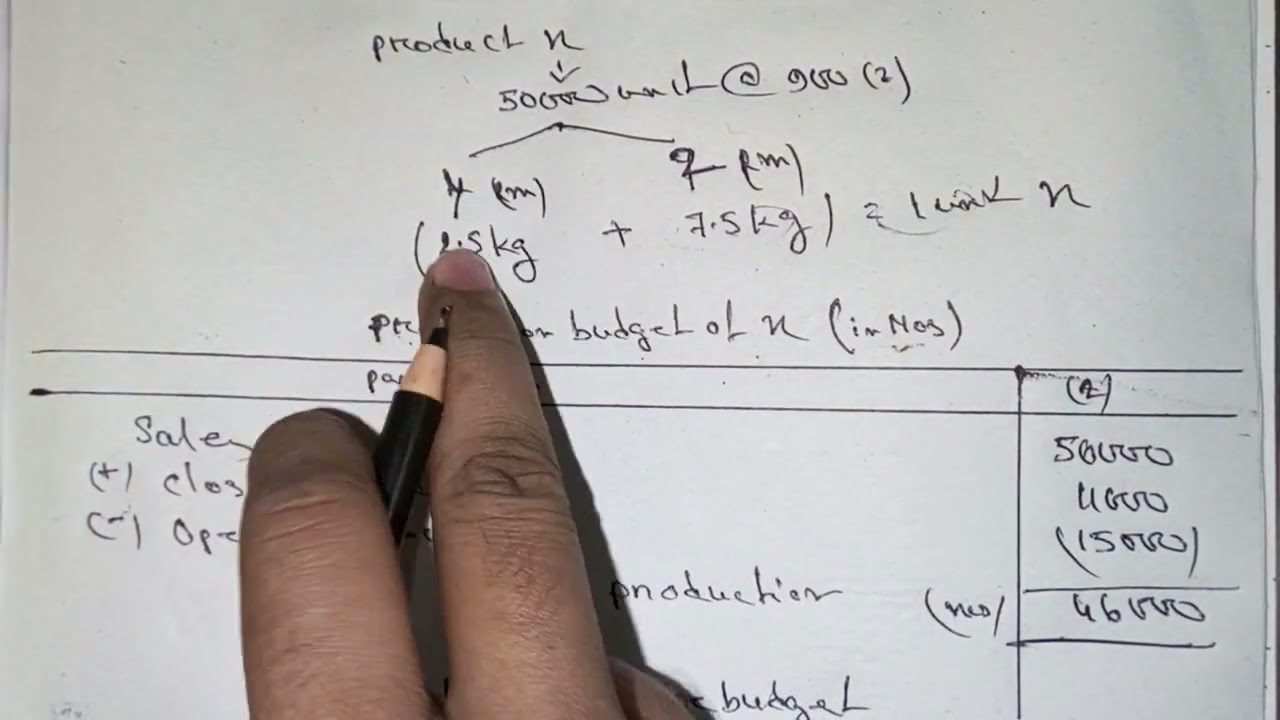 product x
50000 unit @ 900 (₹)
y (rm) z (rm)
( .5kg + 7.5kg) = 1 unit x
on budget of x (in Nos)
(₹)
Sales 50000
(+) Clos 4000
(-) Ope (15000)
production (nos) 46000
budget